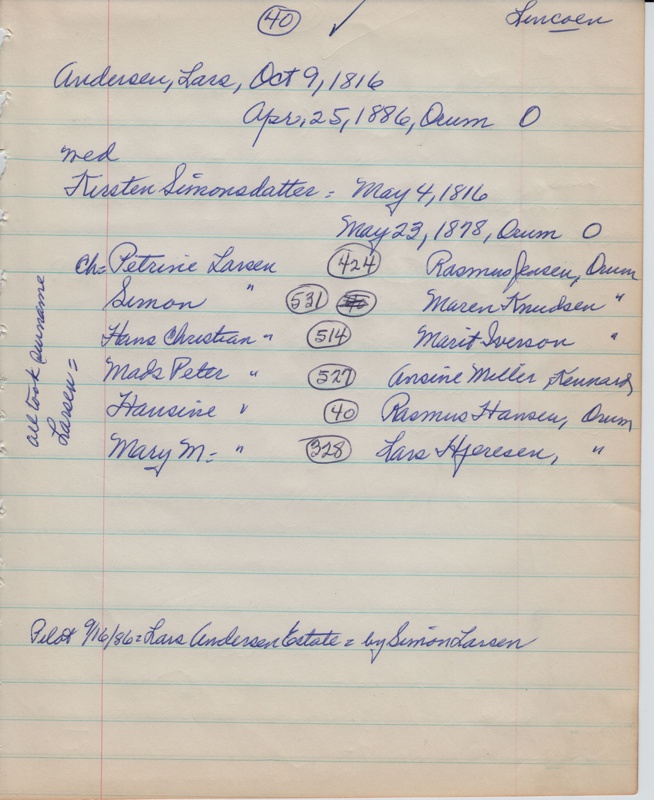 40 ✓ Lincoln
Andersen, Lars, Oct 9, 1816
Apr. 25, 1886, Orum O
wed
Kirsten Simonsdatter = May 4, 1816
May 23, 1878, Orum O
Ch= Petrine Larsen 424 Rasmus Jensen, Orum
Simon " 531 Maren Knudsen "
Hans Christian " 514 Marit Iverson "
Mads Peter " 527 Ansine Miller, Kennard
Hansine " 40 Rasmus Hansen, Orum
Mary M= " 328 Lars Hjeresen, "
all took surname
Larsen =
Pilot 9/16/86 = Lars Andersen Estate = by Simon Larsen